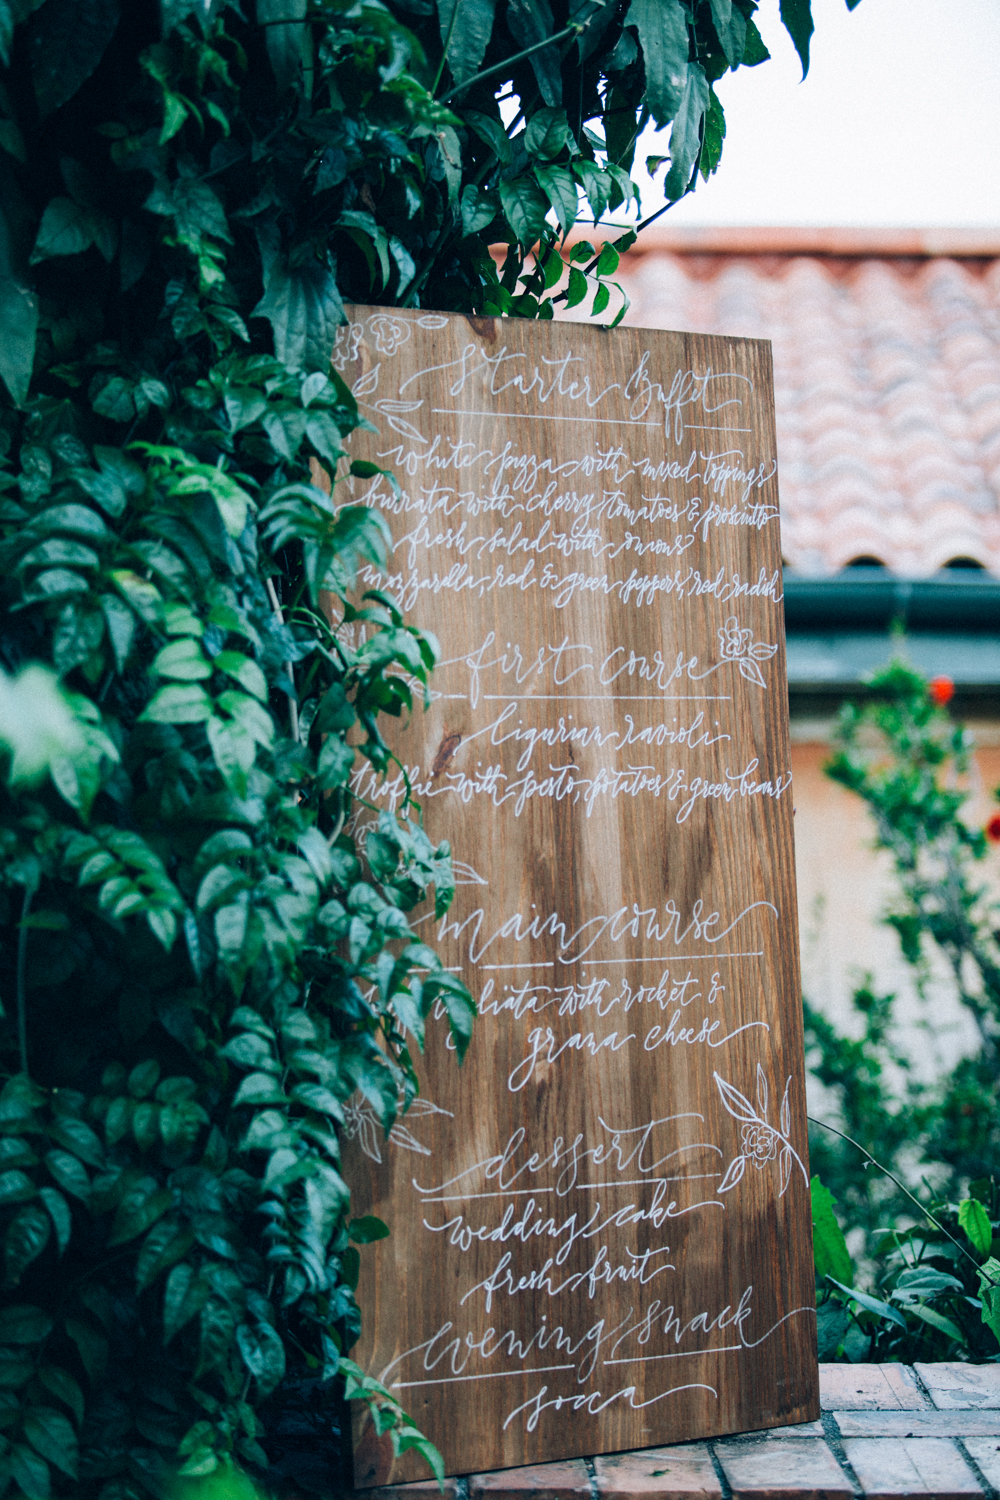 Starter Buffet
white pizza with mixed toppings
burrata with cherry tomatoes & prosciutto
fresh salad with onions
mozzarella, red & green peppers, red radish
first course
ligurian ravioli
troffie with pesto, potatoes & green beans
main course
with rocket &
grana cheese
dessert
wedding cake
fresh fruit
evening snack
socca